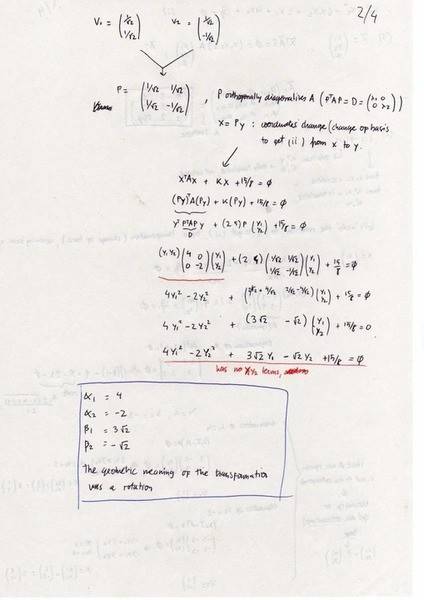 2/4
V₁ = (1/√2 1/√2) V₂ = (1/√2 -1/√2)
P = (1/√2 1/√2 1/√2 -1/√2) , P orthogonally diagonalises A (PᵀAP = D = (λ₁ 0 0 λ₂))
X = Py : coordinates change (change of basis
to get (ii) from x to y.
XᵀAX + KX + 15/8 = 0
(Py)ᵀA(Py) + K(Py) + 15/8 = 0
yᵀ PᵀAP y + (2 4) P (Y₁ Y₂) + 15/8 = 0
D
(Y₁ Y₂) (4 0 0 -2) (Y₁ Y₂) + (2 4) (1/√2 1/√2 1/√2 -1/√2) (Y₁ Y₂) + 15/8 = 0
4Y₁² - 2Y₂² + (2/√2 + 4/√2 2/√2 - 4/√2) (Y₁ Y₂) + 15/8 = 0
4Y₁² - 2Y₂² + (3√2 -√2) (Y₁ Y₂) + 15/8 = 0
4Y₁² - 2Y₂² + 3√2 Y₁ - √2 Y₂ + 15/8 = 0
has no Y₁Y₂ terms,
α₁ = 4
α₂ = -2
β₁ = 3√2
β₂ = -√2
The geometric meaning of the transformation
was a rotation